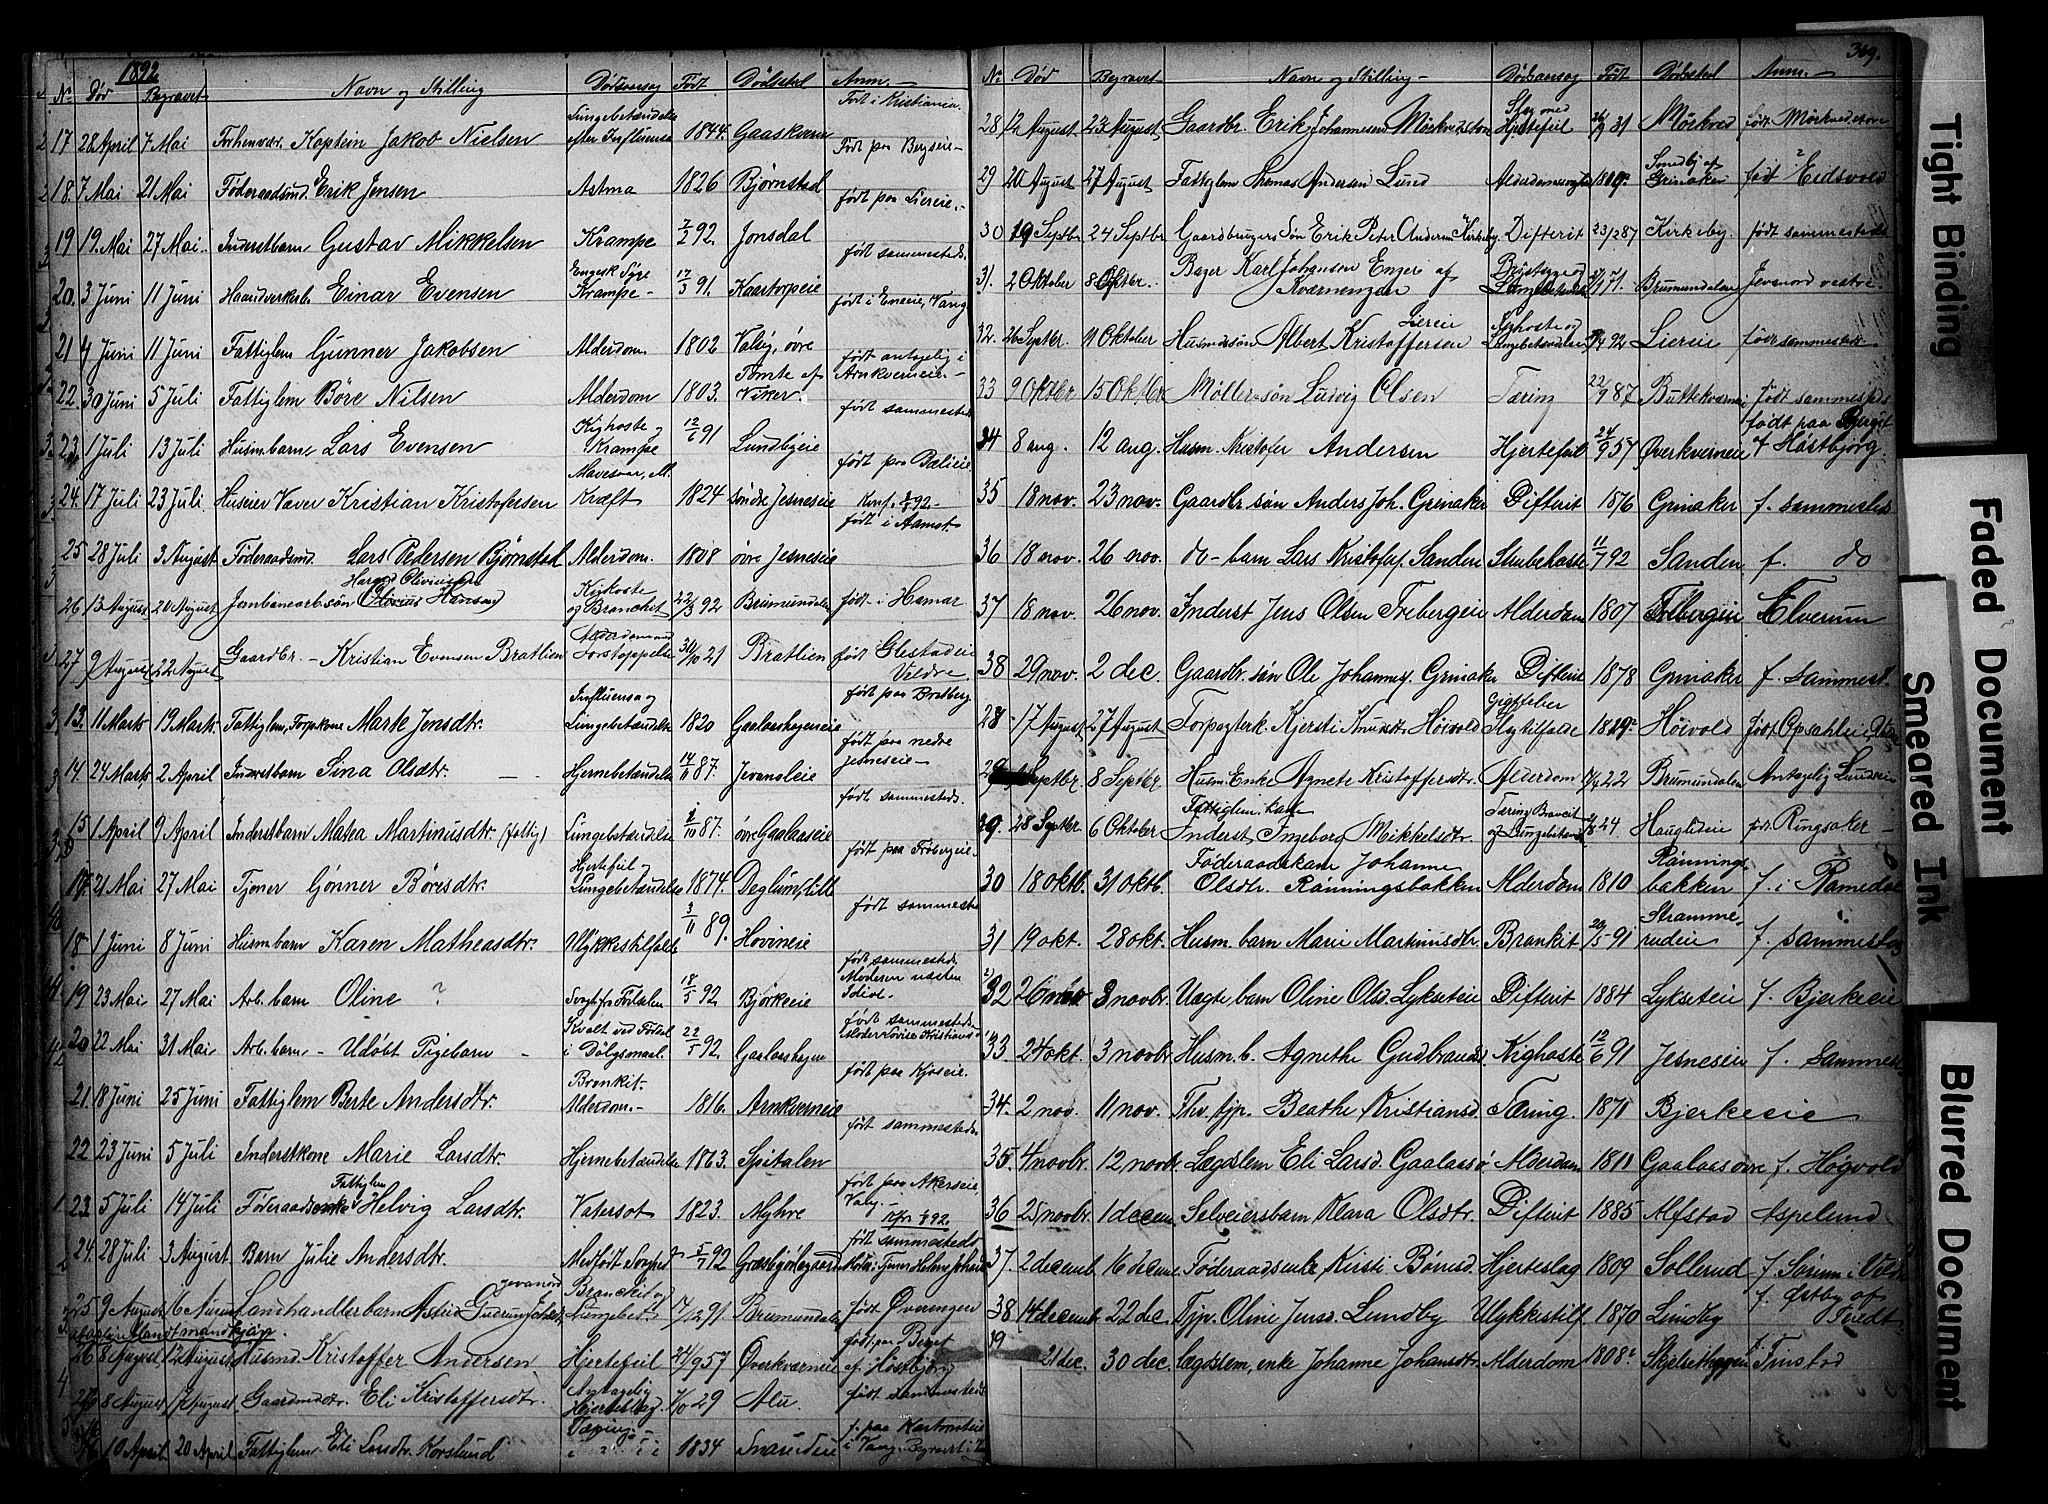 1892
Nr. Dør Begravet Navn og Stilling Dødsaarsag Født Dødssted Anm.
17 28 April 7 Mai Forhenvær. Kaptein Jakob Nielsen Lungebetændelse efter Influensa 1844. Gaaskvern Født i Kristiania.
18. 7 Mai 21 Mai Føderaadsmd. Erik Jensen Astma 1826 Bjørnstad Født paa Bergseie
19 19. Mai 27 Mai. Inderstbarn Gustav Mikkelsen Krampe 7/2 92. Jonsdal født paa Liereie.
20. 3 Juni 11 Juni Haandverkerb. Einar Evensen Engelsk Syge Krampe 17/3 91. Kaatorpeie født sammesteds.
21 4 Juni 11 Juni Fattiglem Gunner Jakobsen Alderdom 1802 Valsig, øvre født i Eneeie, Vang
22. 30 Juni 5 Juli Fattiglem Børe Nilsen Alderdom 1803. Tomte af Vixer født antagelig i Arnkverneie.
23. 1 Juli 13 Juli Husmbarn Lars Evensen Kighoste og Krampe 12/6 91 Lundbyeie født sammesteds
24. 17 Juli 23 Juli Huseier Væver Kristian Kristofersen Mavesaar, M. Kræft 1824 søndre Jesneseie født paa Bælieie
25 28 Juli 3 August Føderaadsmd. Lars Pedersen Bjørnstad Alderdom. 1808 øvre Jesneseie Konf. 92. født i Aamot
26 13 August 20 August Jernbanearb. søn Harald Olivius Hansen Kighoste og Bronchit 22/3 92 Brumundalen født i Hamar
27 9 August 22 August Gaardbr. Kristian Evensen Bratlien Alderdom og Forstoppelse 30/10 21 Bratlien født Glestadeie Veldre
13. 11 Marts 19 Marts. Fattiglem, Forpkone Marte Jensdtr. Influensa og Lungebetændelse 1820 Gaalaashageneie født paa Bratberg
14. 24 Marts 2 April Inderstbarn Sina Olsdtr. Hjernebetændelse 14/11 87. Jevansleie født paa nedre Jesneseie
15 1 April 9 April Inderstbarn Matea Martinusdtr. (fattig) Lungebetændelse 1/10 87. øvre Gaalaaseie født sammesteds.
17 21 Mai 27 Mai Tjener Gønner Børesdtr. Hjertefeil og Lungebetændelse 1874. Deglum, lille født paa Frøbergeie
18. 1 Juni 8 Juni Husmbarn Karen Matheasdtr. Ulykkestilfælde 3/11 89. Hovineie født sammesteds
19 23 Mai 27 Mai Arb. barn Oline ? Svaghed fra Fødselen 18/5 92 Bjørkeie født sammesteds. Moderen næsten Idiot.
20 22 Mai 31 Mai Arb. barn - Udøbt Pigebarn - Kvalt ved Fødsel i Dølgsmaal. 22/5 92. Gaalaashagen født sammesteds Moder Lovise Kristiansd
21. 18 Juni 25 Juni Fattiglem Berte Andersdtr. Bronkit Alderdom. 1816. Arnkverneie født paa Kjoseie.
22 23 Juni 5 Juli Inderstkone Marie Larsdtr. Hjernebetændelse 1863. Spitalen født sammesteds
23. 5 Juli 14 Juli Føderaadsenke Fattiglem Helvig Larsdtr. Vatersot 1823. Myhre født paa Akerseie,
24. 28 Juli 3 August. Barn Julie Andersdtr. Medfødt Svaghed 5/7 92 Græsbjørkgaard født sammesteds
25 9 August 16 August Landhandlerbarn Astrid Gudrun Jevanord Bronchit og Lungebet. 17/12 91 Brumundalen født Øverengen
26 8 August 12 August Husmd. Kristoffer Andersen Hjertefeil 24/9 57 Øverkværneie født paa Berget af Høstbjørg
8 August 17 August. Gaardmdtr. Eli Kristoffersdtr. Antagelig Hjerteslag 29 Alu. født sammesteds
10 April 20 April Fattiglem Eli Larsdtr. Korslund Tæring 1834 Snarudeie i Vang. Begravet i
369.
Nr. Død Begravet Navn og Stilling Dødsaarsag Født Dødssted Anm.
28 12 August 23 August Gaardbr. Erik Johannesen Mørkvedston Slag med Hjertefeil 26/9 31 Mørkved født Mørkvedston
29 20 August 27 August Fattiglem Thomas Andersen Lund Alderdomsvaghed 1809. Smedby af Grinaker født Eidsvold
30 19 Septbr 24 Septbr Gaardbrugers Søn Erik Peter Andersen Kirkeby Difterit 23/2 87 Kirkeby. født sammesteds
31. 2 Oktober 8 Oktbr. Bager Karl Johansen Enger af Kværnengen Brystsyge og Lungebetænd. 71. Brumundalen Jevanord vestre.
32. 26 Septbr. 1 Oktober Husmdssøn Albert Kristoffersen Liereie Kighoste og Lungebetændelse 92 Liereie født sammesteds
33 9 Oktbr 15 Oktbr Møllers søn Ludvig Olsen Tæring 22/9 87 Buttekverneie Født sammesteds
34 8 aug. 12 aug. Husm. Kristofer Andersen Hjertefeil 24/9 57 Øverkverneie født paa Berget af Høstbjørg.
35 18 nov. 23 nov. Gaardbr. søn Anders Joh. Grinaker Difterit 1876 Grinaker f. sammesteds
36 18 nov. 26 nov. do - barn Lars Kristofs. Sanden Strubehoste 11/7 92 Sanden f. do
37 18 nov. 26 nov. Inderst Jens Olsen Frebergeie Alderdom 1807 Frebergeie Elverum
38 29 nov. 2 dec. Gaardbr. søn Ole Johannes. Grinaker Difterit 1878 Grinaker f. sammest.
28 17 August 27 August Forpagterk. Kjersti Knudsdtr. Høivold Slagtilfælde Høivold født Opsahleie
29 Septbr 8 Septbr Husm. Enke Agnete Kristoffersdtr. Alderdom 22 Brumundalen Antagelig Lundseie
29. 28 Septbr 6 Oktober Fattiglem Inderst Ingeborg Mikkelsdtr. Tæring og Lungebetænd. 24. Hauglideie født Ringsaker
30 18 oktb. 31 oktb. Føderaadskone Johanne Olsdtr. Rønningsbakken Alderdom 1810 Rønningsbakken f. i Ramedal
31 19 okt. 28 okt. Husm. barn Marie Martinusdtr. Bronkit 20/5 91 Strammerudeie f. sammesteds
32 26 oktbr 3 novbr. Uægte barn Oline Olsd. Lykseteie Difterit 1884 Lykseteie f. Bjerkeeie
33 24 okt. 3 novbr. Husm. b. Agnethe Gudbrandsd Kighoste 12/6 91 Jesneseie f. Sammest
34. 2 nov. 11 nov. Fhv. tjp. Beathe Kristiansd. Tæring. 1871 Bjerkeeie
35. 4 novbr. 12 novbr. Lægdslem Eli Larsd. Gaalaasø Alderdom 1811 Gaalaas øvre f. Høgvold
36 25 novbr. 1 decem. Selveiersbarn Klara Olsdtr. Difterit 1885 Alfstad Aspelund
37. 2 decemb. 16 decem. Føderaadsenke Kirsti Bønsd. Hjerteslag 1809 Sollerud f. Sørum i Vold
38 14 decemb. 22 dec. Tjp. Oline Jenss. Lundby Ulykkestilf. 1870 Lundby f. Østby af
39 21 dec. 30 dec. Lægdslem, enke Johanne Johansdtr. Alderdom 1808. Skjelsethaggen Finstad
Tight Binding
Faded Document
Smeared Ink
Blurred Document